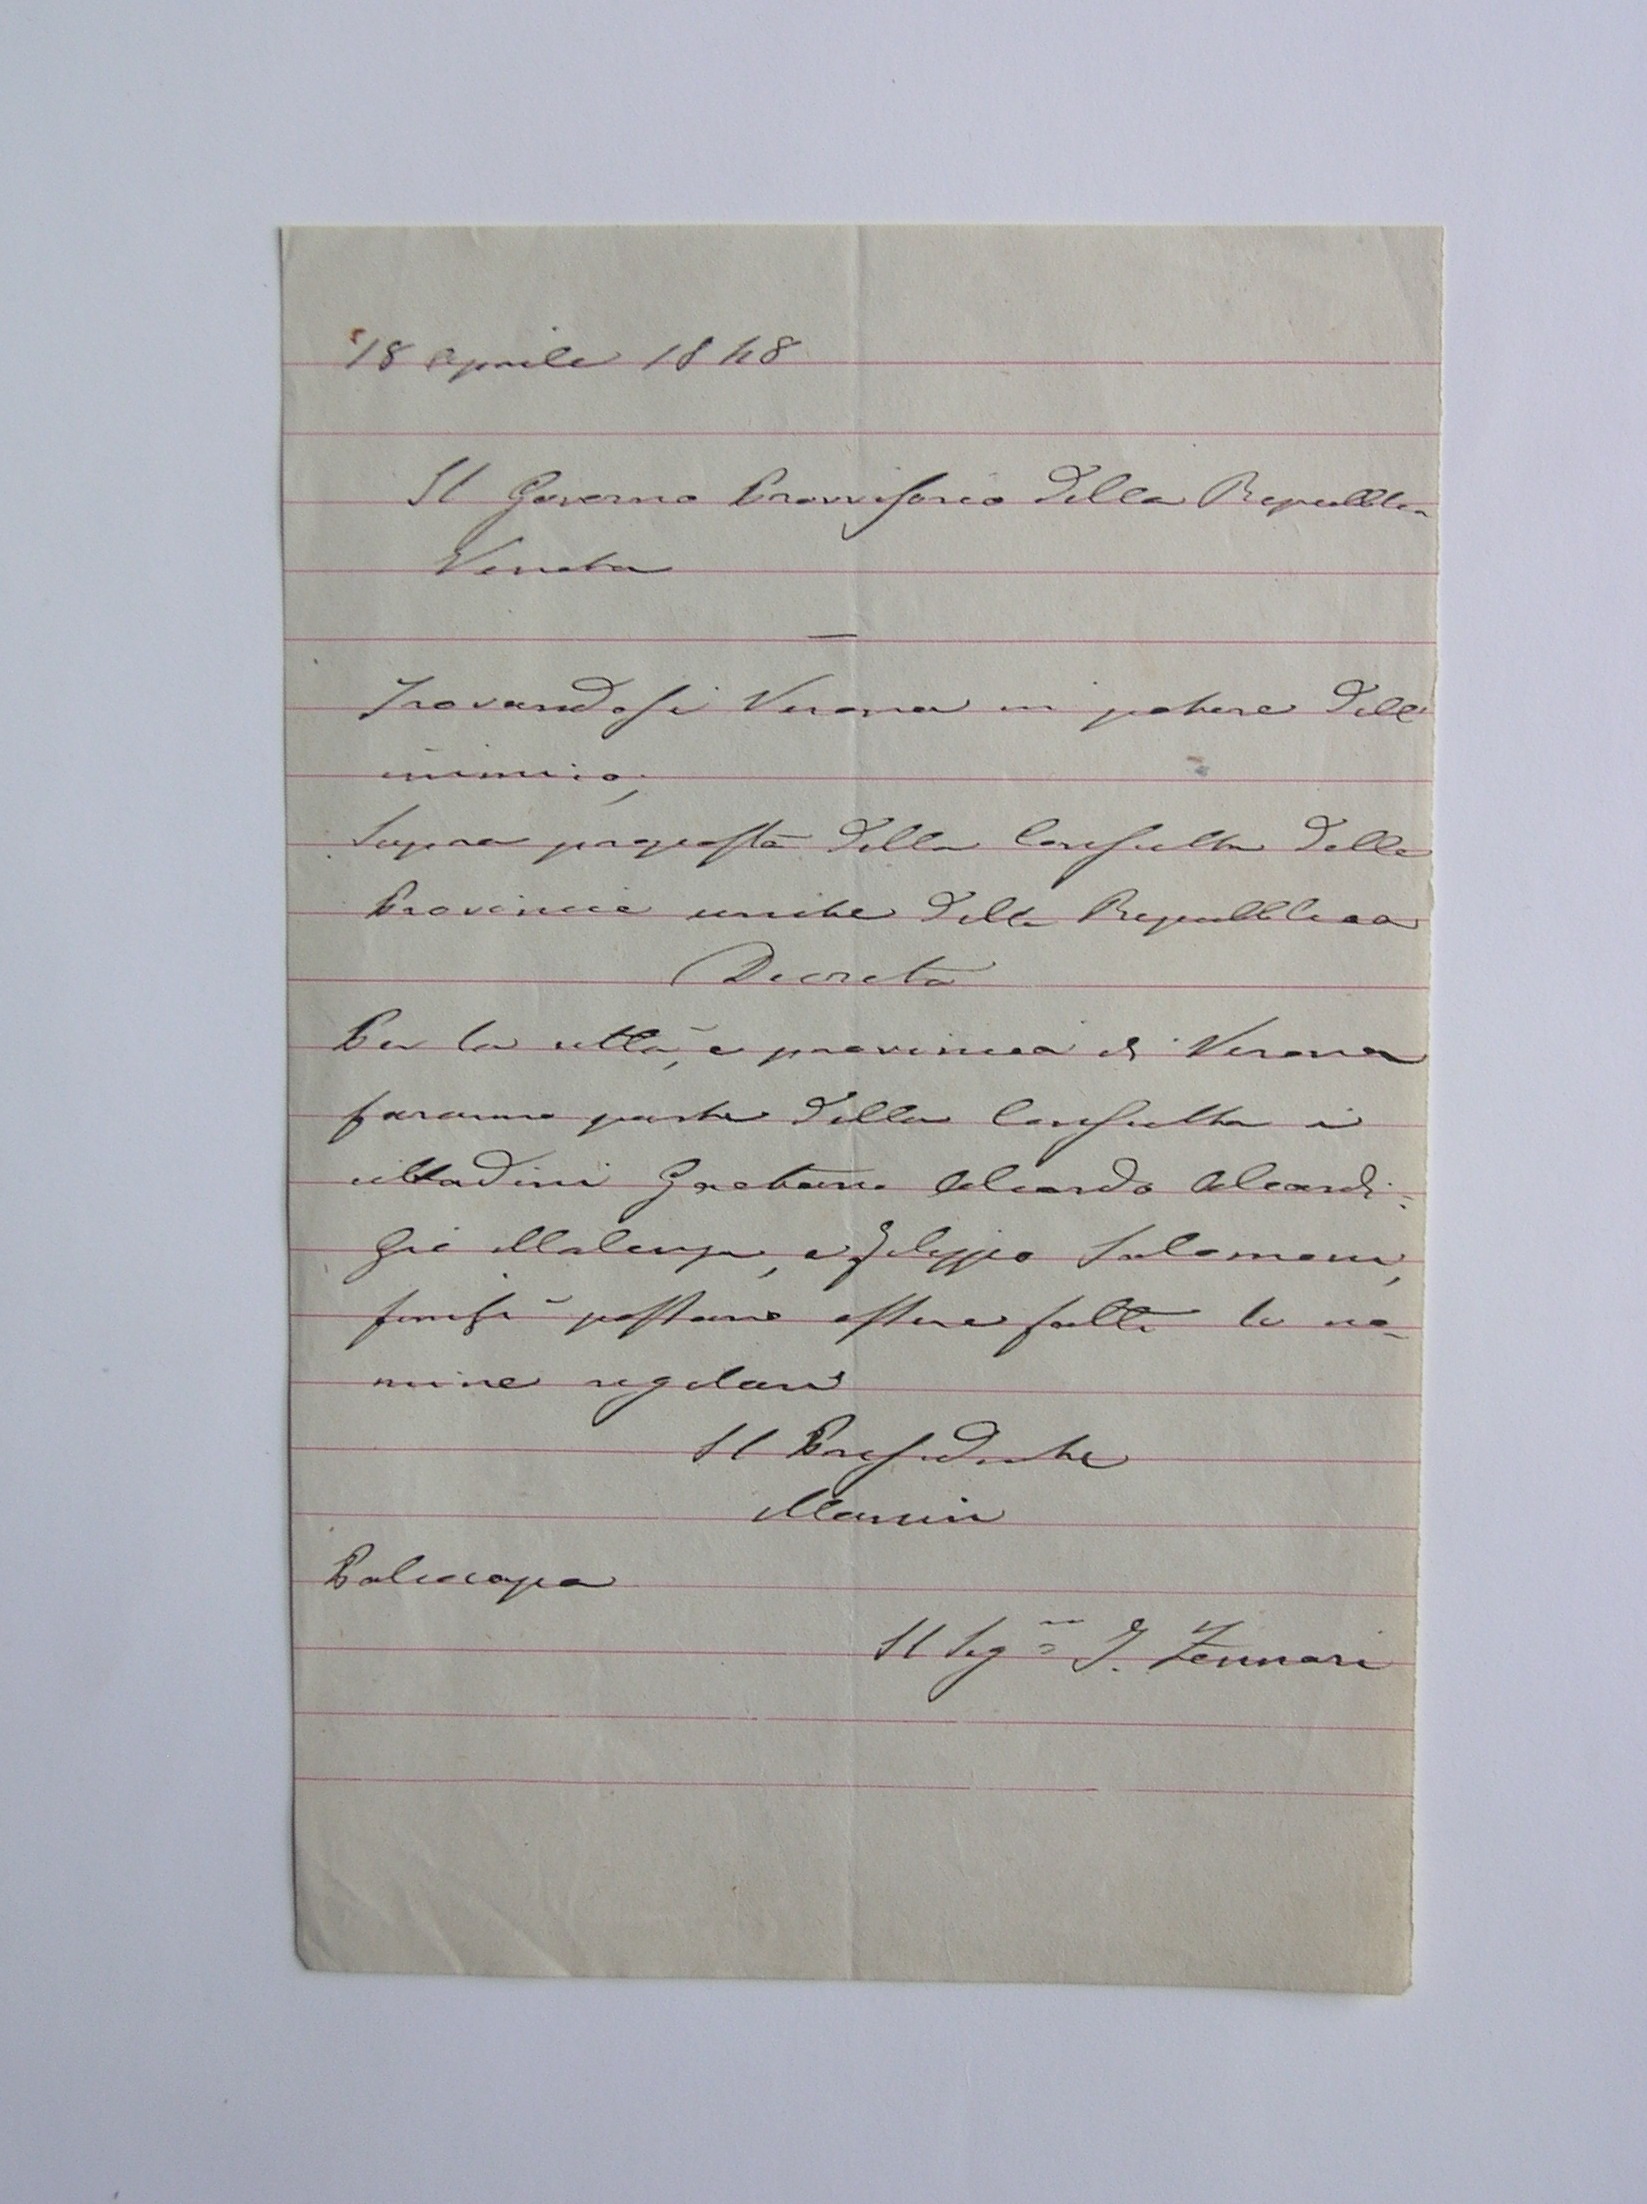 18 Aprile 1848
Il Governo Provvisorio della Repubblica
Veneta
—
Trovandosi Verona in potere dell
inimico,
Sopra proposta della Consulta delle
Provincie unite della Repubblica
Decreta
Per la città, e provincia di Verona
faranno parte della Consulta i
cittadini Gaetano Aleardo Aleardi
Gio Malenza, e Filippo Salomoni,
finchè possano essere fatte le no-
mine regolari
Il Presidente
Manin
Paleocapa
Il Segrio J. Zennari